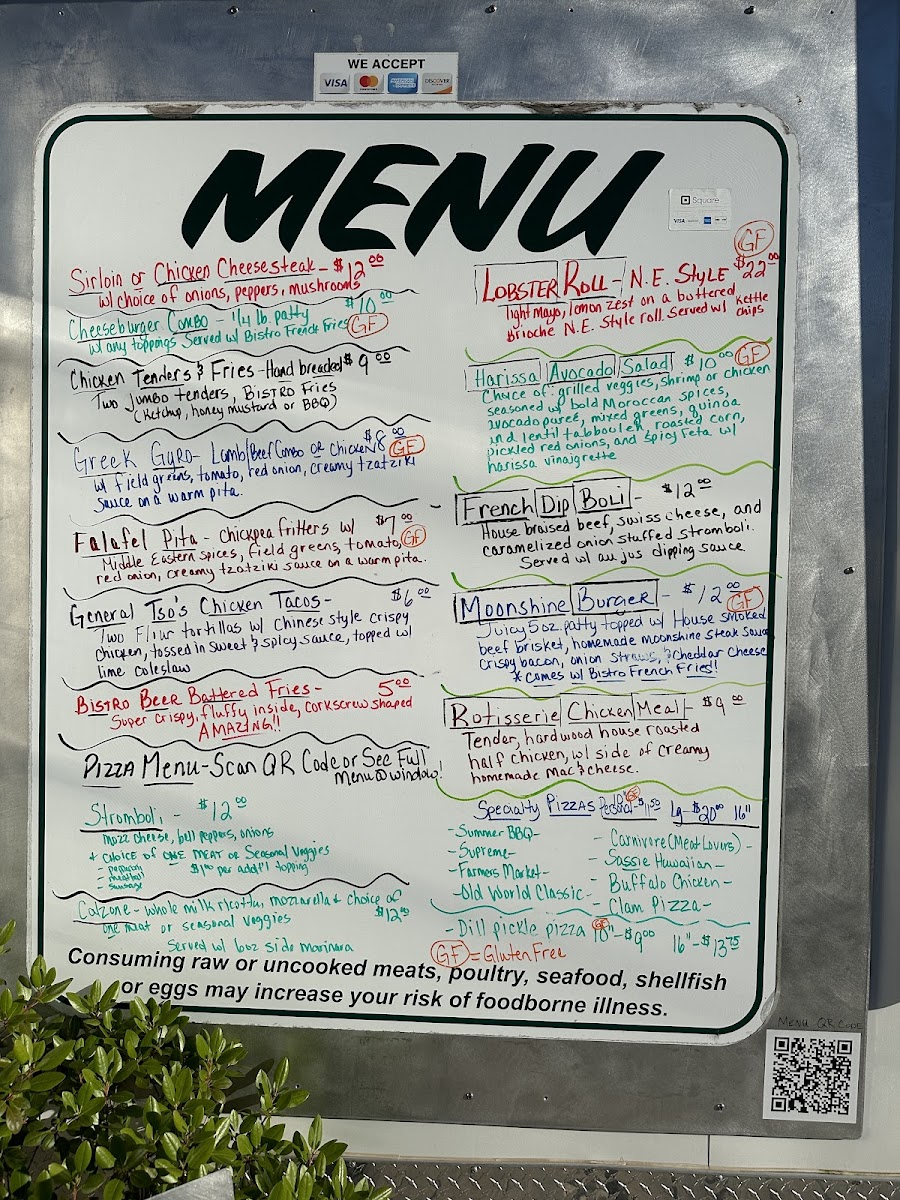 WE ACCEPT
VISA
DISCOVER
MENU
Square
VISA
Sirloin or Chicken Cheesesteak - $12 00
w/ choice of onions, peppers, mushrooms
Cheeseburger Combo - 1/4 lb. patty $10 00
w/ any toppings Served w/ Bistro French Fries GF
Chicken Tenders & Fries - Hand breaded $9 00
Two Jumbo tenders, BISTRO Fries
(Ketchup, honey mustard or BBQ)
Greek Gyro - Lamb/Beef Combo OR Chicken $8 00
w/ field greens, tomato, red onion, creamy tzatziki GF
sauce on a warm pita.
Falafel Pita - Chickpea fritters w/ $7 00
Middle Eastern spices, field greens, tomato, GF
red onion, creamy tzatziki sauce on a warm pita.
General Tso's Chicken Tacos - $6 00
Two Flour tortillas w/ Chinese style crispy
chicken, tossed in sweet & spicy sauce, topped w/
lime coleslaw
BISTRO BEER BATTERED FRIES - 5 00
Super crispy, fluffy inside, corkscrew shaped
AMAZING!!
PIZZA MENU - Scan QR Code or See Full
Menu @ window!
Stromboli - $12 00
mozz cheese, bell peppers, onions
+ CHOICE OF ONE MEAT OR Seasonal Veggies
- pepperoni $1 00 per addt'l topping
- meatball
- sausage
Calzone - whole milk ricotta, mozzarella & choice of
one meat or seasonal veggies $12 00
Served w/ 6oz side marinara
GF
LOBSTER ROLL - N.E. STYLE $22 00
light mayo, lemon zest on a buttered
Brioche N.E. Style roll. Served w/ Kettle chips
Harissa Avocado Salad $10 00 GF
Choice of: grilled veggies, shrimp or chicken
seasoned w/ bold Moroccan spices,
avocado puree, mixed greens, quinoa
and lentil tabbouleh, roasted corn,
pickled red onions, and spicy feta w/
harissa vinaigrette
French Dip Boli - $12 00
House braised beef, swiss cheese, and
caramelized onion stuffed stromboli.
Served w/ au jus dipping sauce
Moonshine Burger - $12 00 GF
Juicy 5 oz patty topped w/ House smoked
beef brisket, homemade moonshine steak sauce
crispy bacon, onion straws, & cheddar cheese
* comes w/ Bistro French Fries!
Rotisserie Chicken Meal - $9 00
Tender, hardwood house roasted
half chicken, w/ side of creamy
homemade Mac & cheese.
Specialty PIZZAS Personal 10" GF - $11 50 Lg - $20 00 16"
- Summer BBQ -
- Supreme -
- Farmers Market -
- Old World Classic -
- Carnivore (Meat Lovers) -
- Sassie Hawaiian -
- Buffalo Chicken -
- Clam Pizza -
- Dill pickle pizza 10" GF - $9 00 16" - $13 75
GF = Gluten Free
Consuming raw or uncooked meats, poultry, seafood, shellfish
or eggs may increase your risk of foodborne illness.
MENU QR CODE